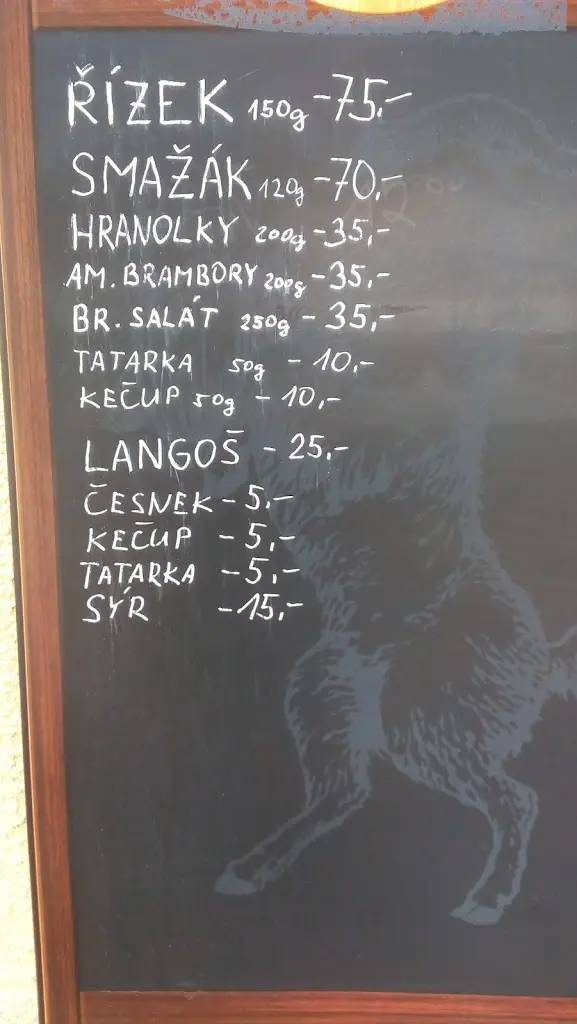 ŘÍZEK 150g -75.-
SMAŽÁK 120g -70,-
HRANOLKY 200g -35,-
AM. BRAMBORY 200g -35.-
BR. SALÁT 250g - 35,-
TATARKA 50g - 10,-
KEČUP 50g - 10,-
LANGOŠ - 25,-
ČESNEK - 5.-
KEČUP - 5,-
TATARKA - 5,-
SÝR -15,-